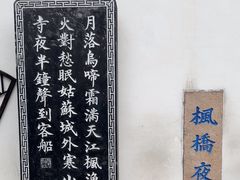 楓橋夜
月落烏啼霜滿天江楓漁
火對愁眠姑蘇城外寒山
寺夜半鐘聲到客船